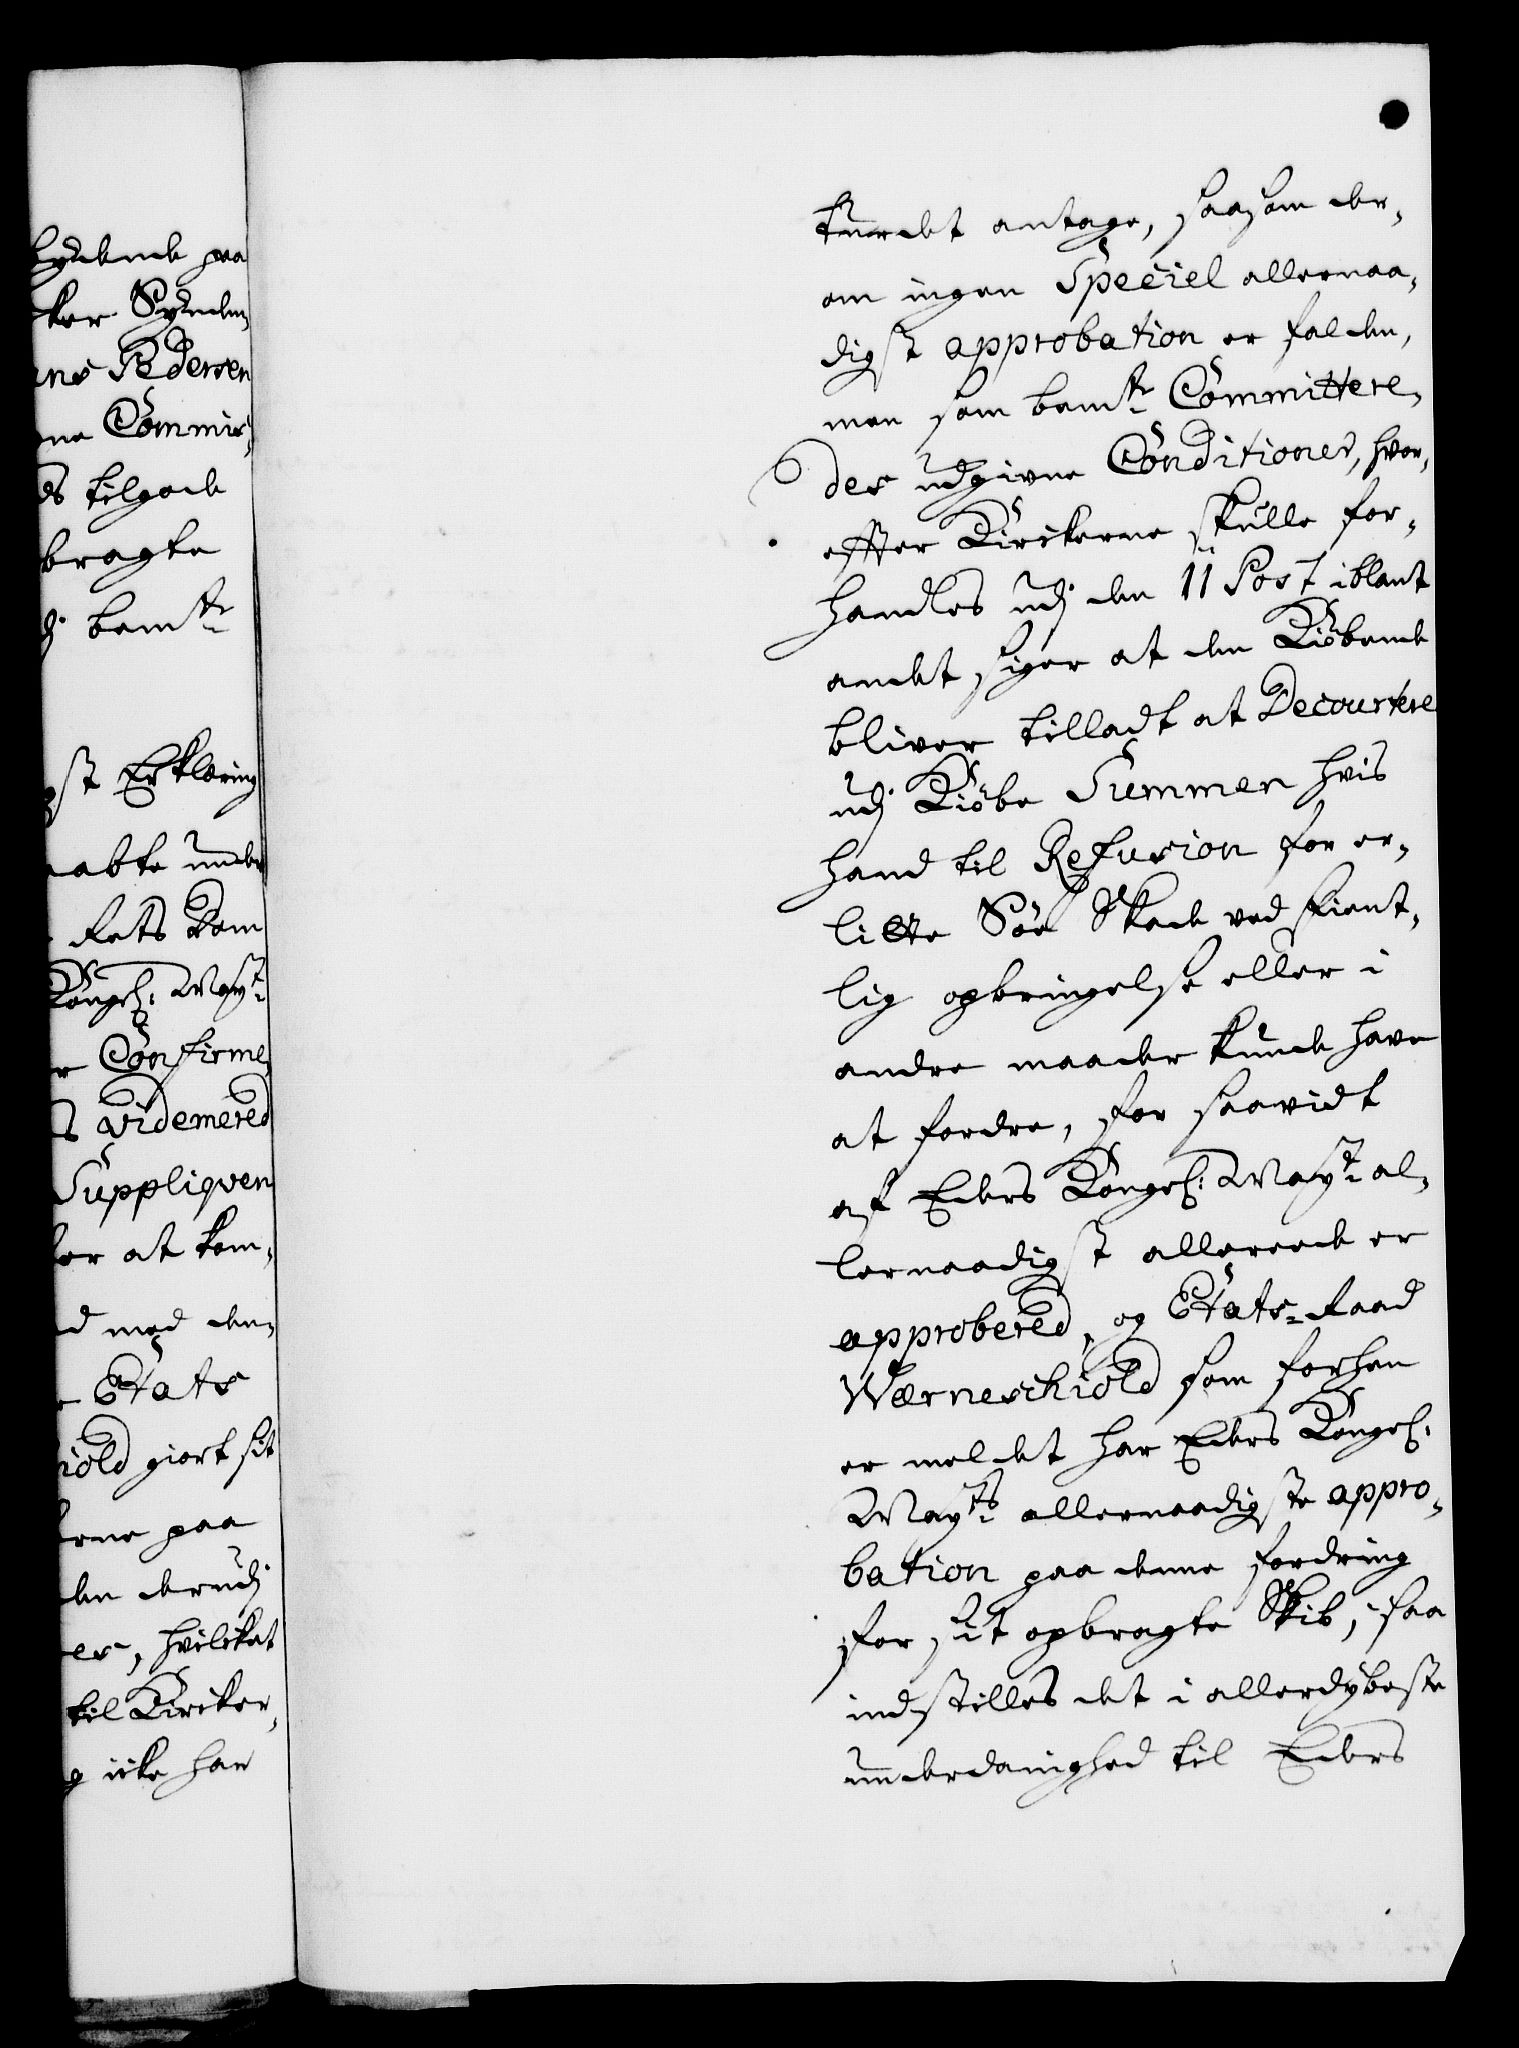 lydende paa
ker Synden,
ns Pedersen
ne Commis,
ds tilgode
bragte
dj bemte
st Erklæring
abte under
Rets Dom
Kongel: Mayt:
r Confirme,
s videmered
Suppliqven
er at kom,
d med den,
Etats
iold giort sit
erne paa
den derudj
er, hvilcket
til Kircker,
g icke har
turdet antage, saasom der,
om ingen Speciel allernaa,
digst approbation er falden,
men som bemte Committere,
des udgivne Conditioner, hvor,
effter Kirckerne skulle for,
handles udj den 11 Post iblant
andet siger at den Kiøbende
bliver tilladt at Decourtere
udj Kiøbe Summen hvis
hand til Refusion for er,
litte Søe Skade ved fient,
lig opbringelse eller i
andre maader kunde have
at fordre, for saavidt
af Eders Kongel: Mayt: al,
lernaadigst allereede er
approbered, og Etats-Raad
Wærneschiold som forhen
er meldet har Eders Kongel:
Mayts: allernaadigste appro,
bation paa denne fordring
for sit opbragte Skib, saa
indstilles det i allerdybeste
underdanighed til Eders